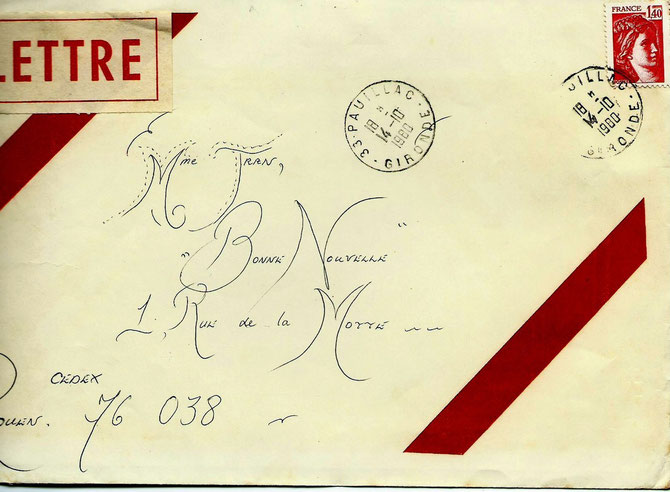 LETTRE
FRANCE
1,40
33-PAUILLAC-GIRONDE
18 H
14-10
1980
UILLAC
18 H
14-10
1980
GIRONDE
Mme Tran,
"Bonne Nouvelle"
1, Rue de la Motte
CEDEX
ROUEN. 76 038